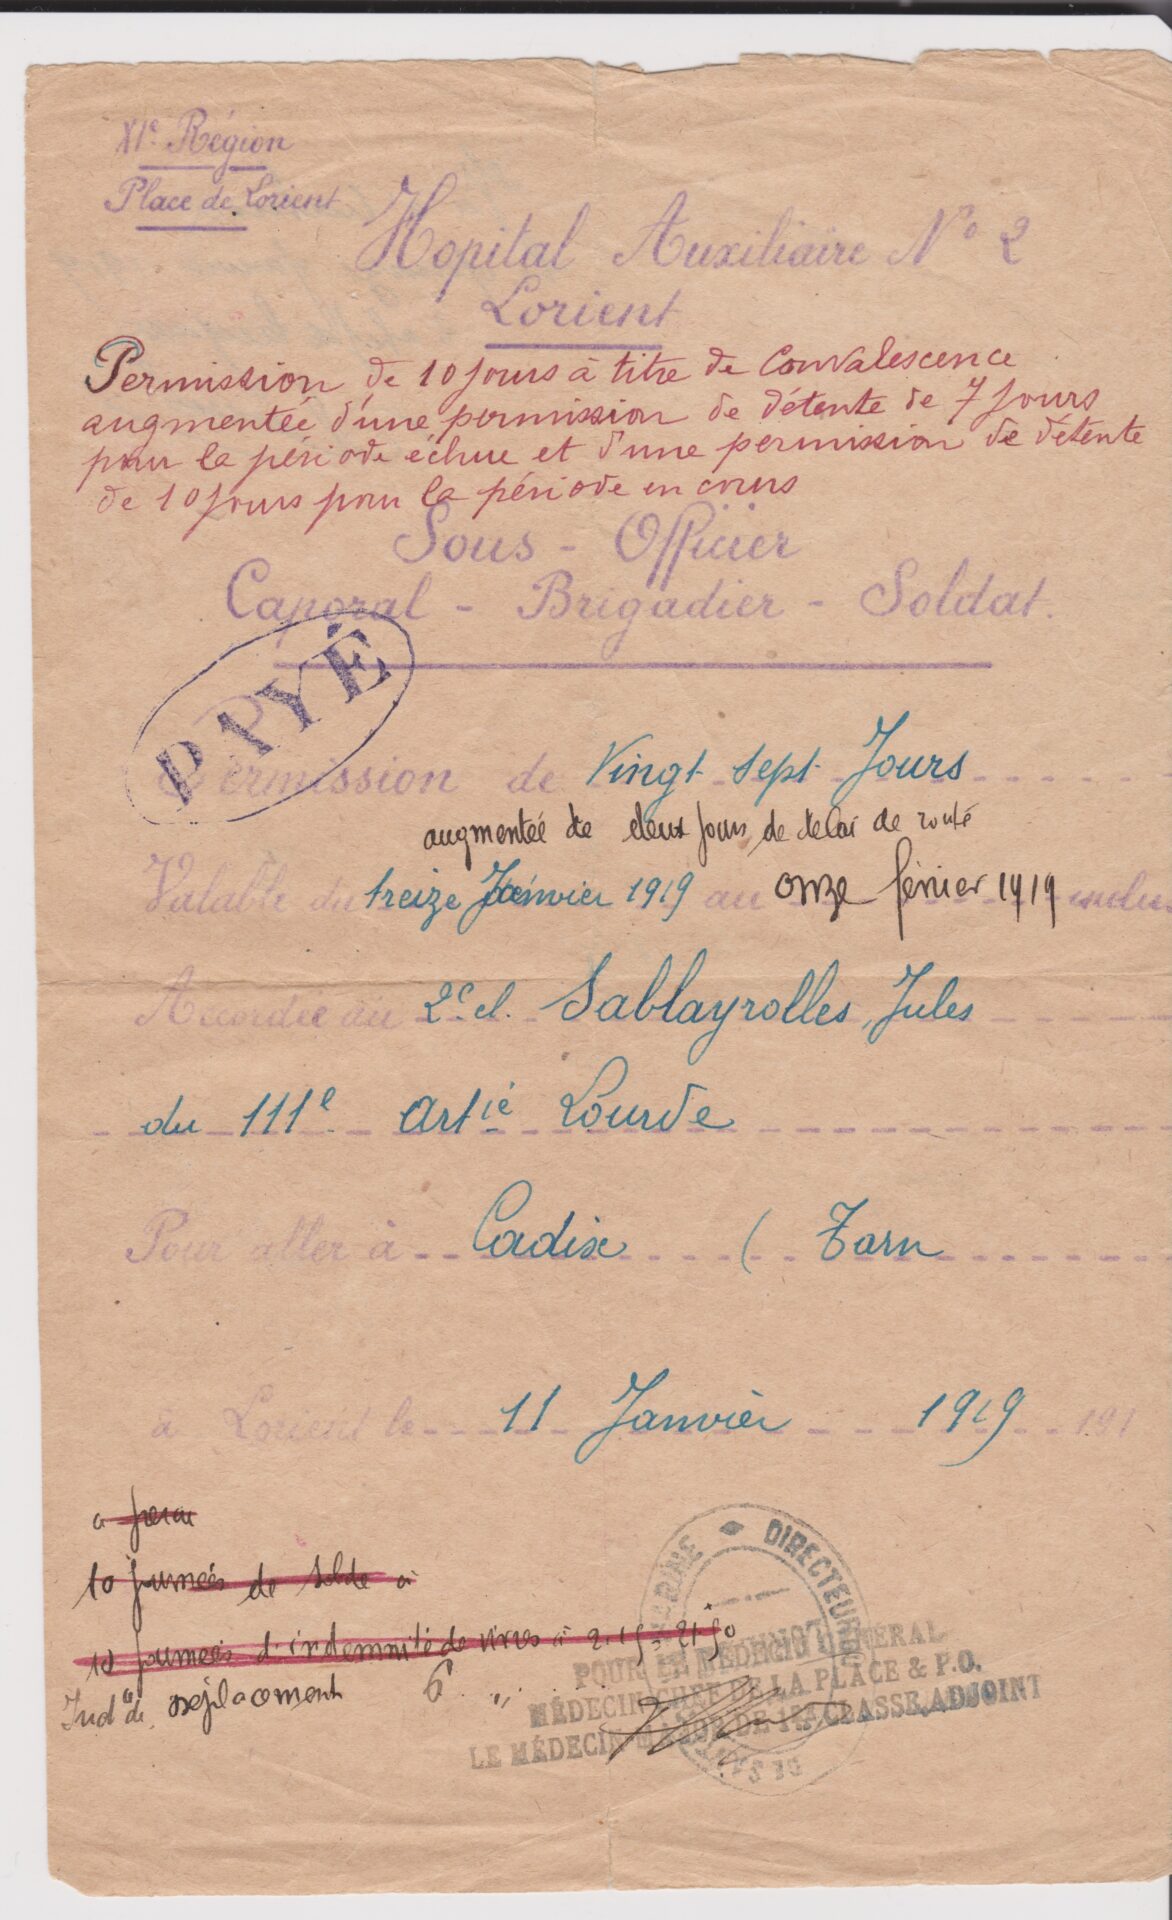 XIe Région
Place de Lorient
Hopital Auxiliaire No 2
Lorient
Permission de 10 Jours à titre de Convalescence
augmentée d'une permission de détente de 7 Jours
pour la période échue et d'une permission de détente
de 10 Jours pour la période en cours
Sous - Officier
Caporal - Brigadier - Soldat.
PAYÉ
Permission de Vingt sept Jours
augmentée de deux jours de délai de route
Valable du treize Janvier 1919 au onze février 1919 inclu
Accordée au 2e cl. Sablayrolles, Jules
du 111e Artie Lourde
Pour aller à Cadix ( Tarn
à Lorient le 11 Janvier 1919 191
a
10 journées de solde à
10 journées d'indemnité de vivres à
Indté de déplacement 6 "
DIRECTEUR DU
POUR LE MÉDECIN GÉNÉRAL
MÉDECIN CHEF DE LA PLACE & P.O.
LE MÉDECIN MAJOR DE 1re CLASSE, ADJOINT